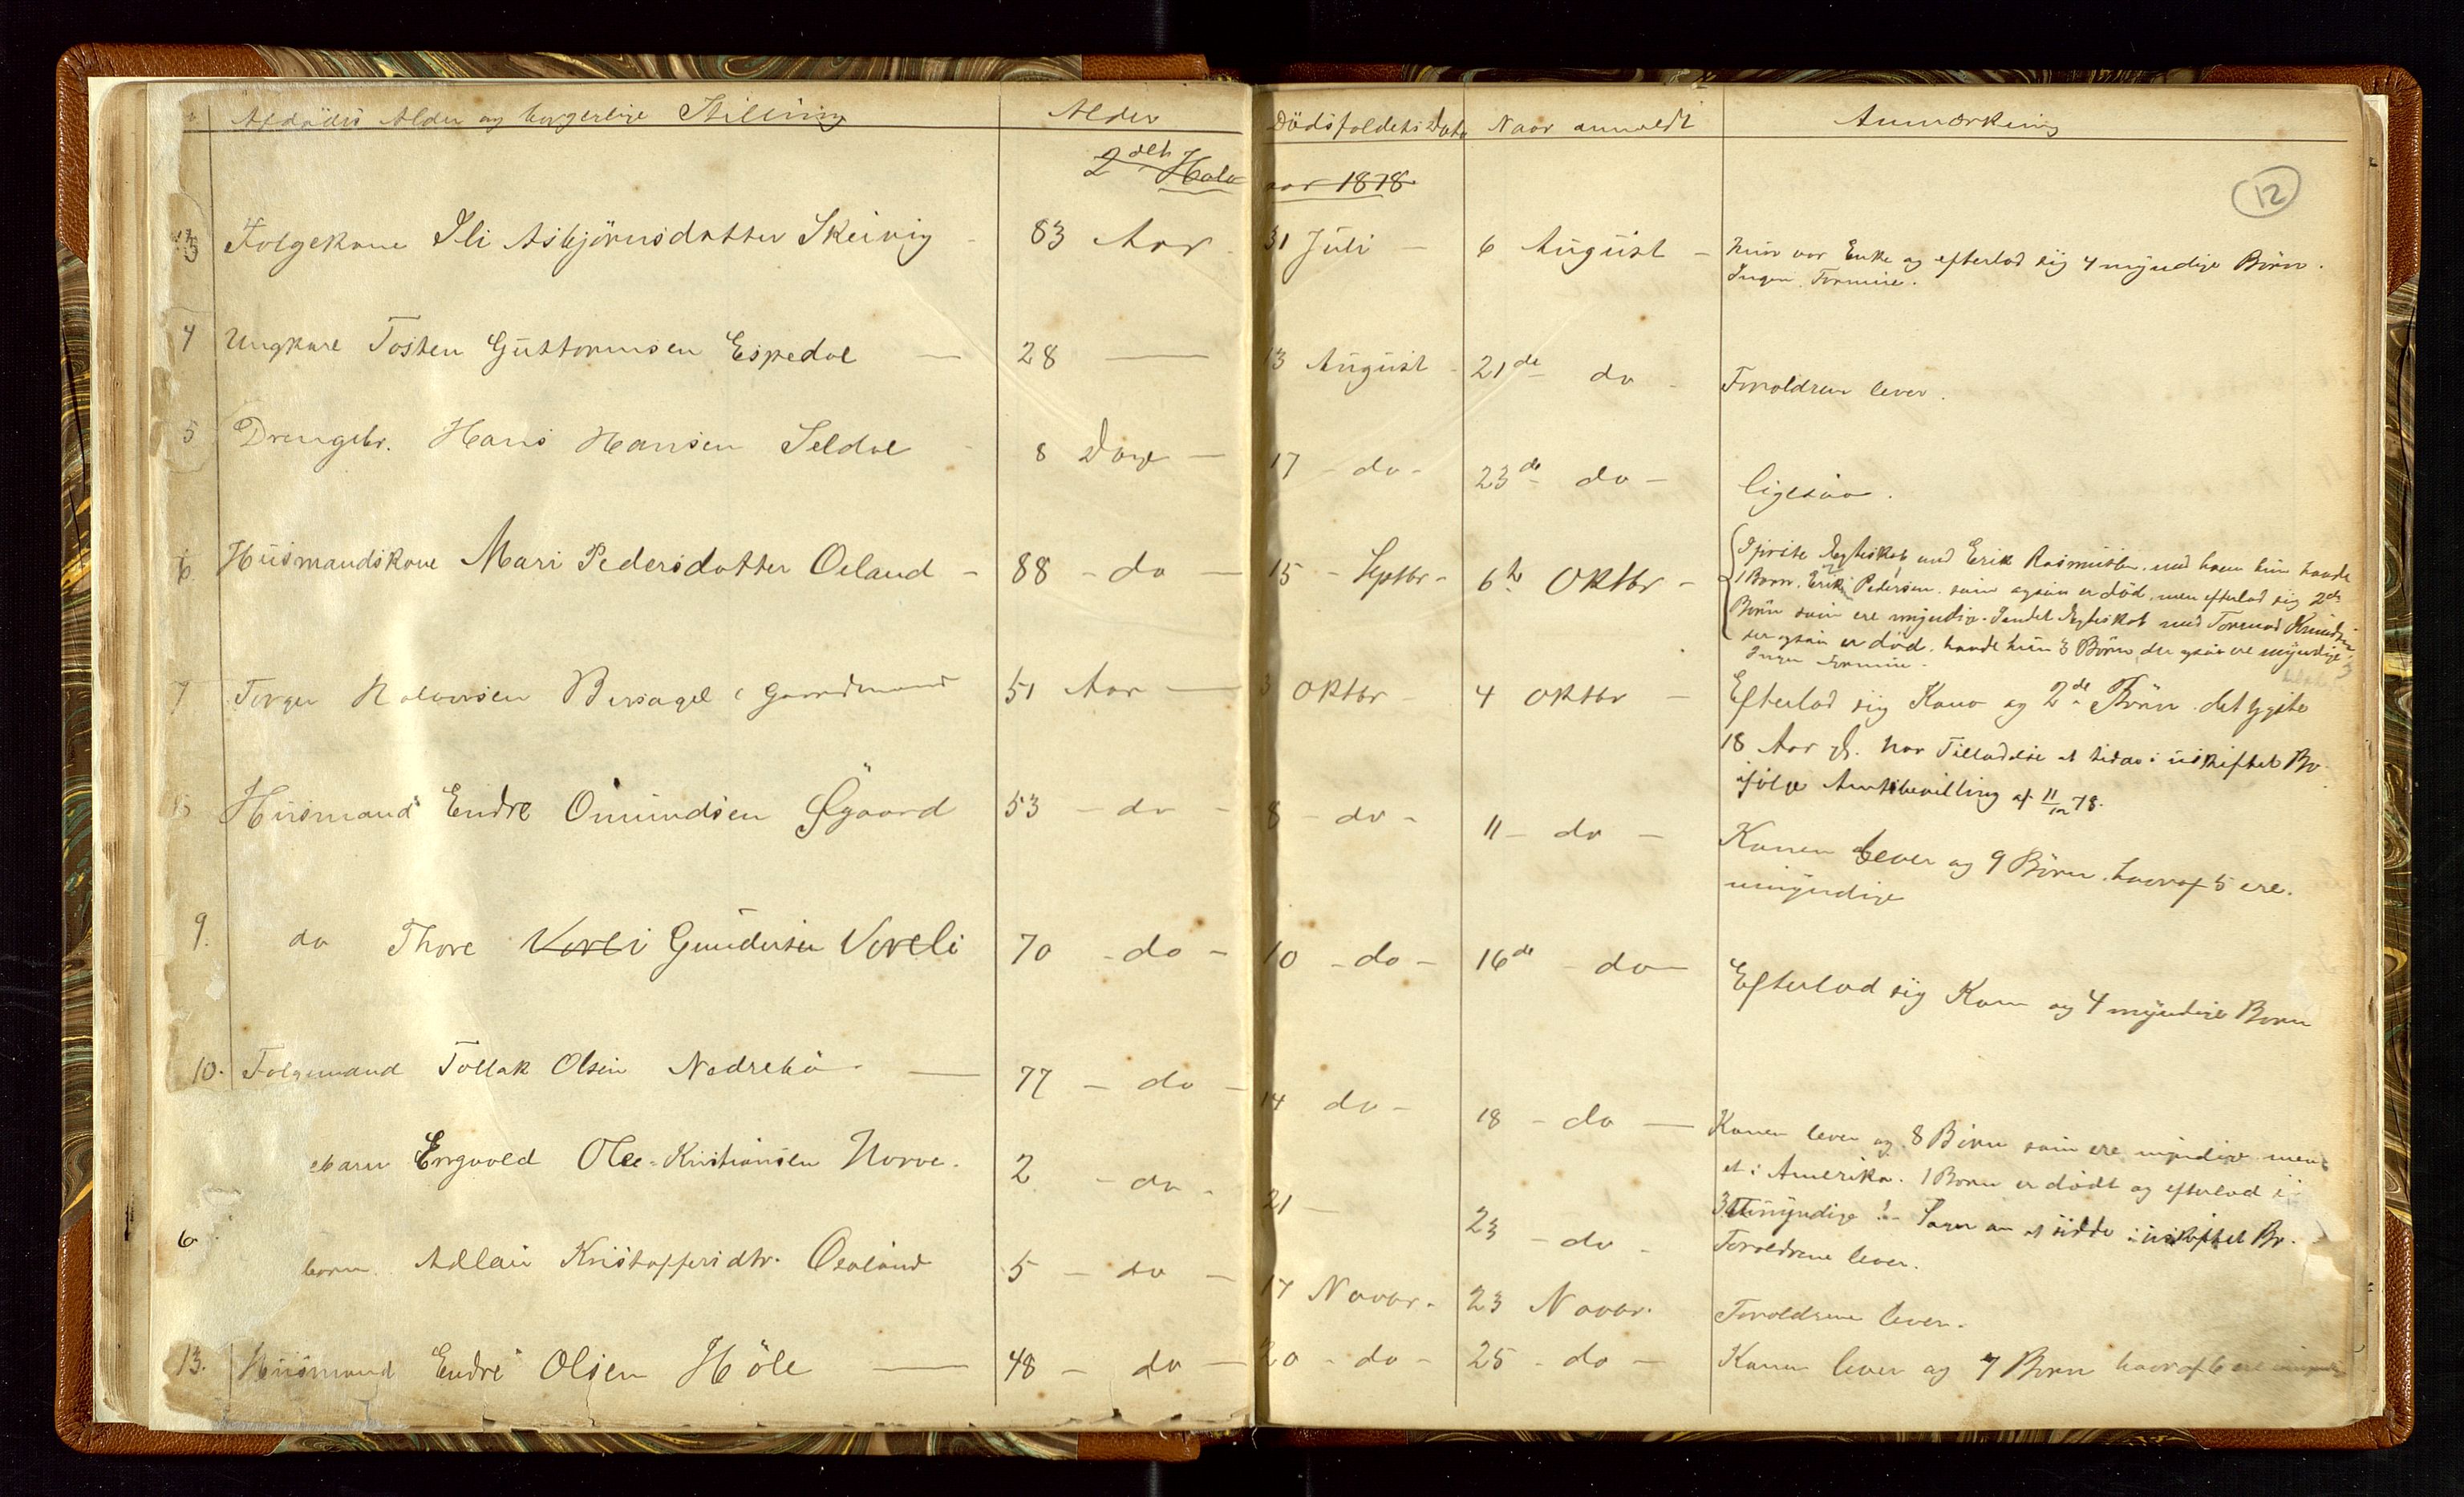 Afdødes Alder og borgerlige Stilling Alder Dödsfaldets Dato Naar anmeldt Anmærkning
2det Halvaar 1878
12
3 Folgekone Ili Asbjörnsdatter Skeivig - 83 Aar 31 Juli - 6 August - Hun var Enke og efterlod sig 4 myndige Börn.
Ingen Formue.
4 Ungkare Tosten Guttormsen Espedal - 28 - 13 August - 21de do - Foræeldrene lever.
5 Drengebr. Hans Hansen Seldal - 8 Dage - 17 - do - 23de do - ligesaa.
6. Husmandskone Mari Pedersdatter Oeland - 88 - do - 15 - Septbr - 6te Oktbr - I förste Ægteskab med Erik Rasmussen. med ham hun havde
1 Barn. Erik Pedersen. som ogsaa er död. men efterlod sig 2de
Börn som ere myndige. I andet Ægteskab med Tormod Knudsen
der ogsaa er död. havde hun 3 Börn, der ogsaa ere myndige
Ingen Formue.
7 Torger Halvorsen Bersagel (Gaardmand 51 Aar - 3 Oktbr - 4 Oktbr - Efterlod sig Kone og 2de Börn. det yngste
18 Aar gl. Har Tilladelse at sidde i uskiftet Bo
ifölge Amtsbevilling af 11/12 78.
Husmand Endre Omundsen Øgaard 53 - do - 8 - do - 11 - do - Konen lever og 9 Börn. hvoraf 5 ere.
umyndige
9. do Thore Verli Gundersen Voreli 70 - do - 10 - do - 16de - do - Efterlod sig Kone og 4 myndige Börn
10. Folgemand Tollak Olsen Nedrebö - 77 - do - 14 do - 18 - do - Konen lever og 8 Börn som ere myndige men
et i Amerika. 1 Barn er dödt og efterlod
3 Umyndige! - Søger om at sidde i uskiftet Bo.
Barn Engvald Ole-Kristiansen Norve. 2 - do - 21 - 23 - do - Foræeldrene lever.
barn. Adlau Kristoffersdtr. Oealand 5 - do - 17 Novbr. 23 Novbr. Foræeldrene lever.
13. Husmand Endre Olsen Höle - 48 - do - 20 - do - 25 - do - Konen lever og 7 Börn hvoraf 6 ere